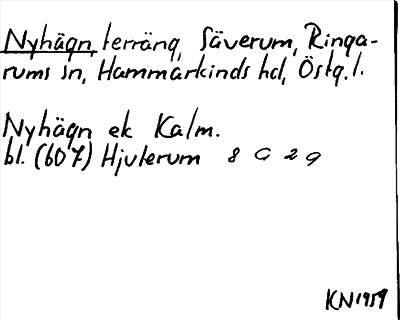 Nyhägn, terräng, Säverum, Ringa-
rums sn, Hammarkinds hd, Östg.l.
Nyhägn ek Kalm.
bl. (607) Hjuterum 8 G 2 g
KN 1959